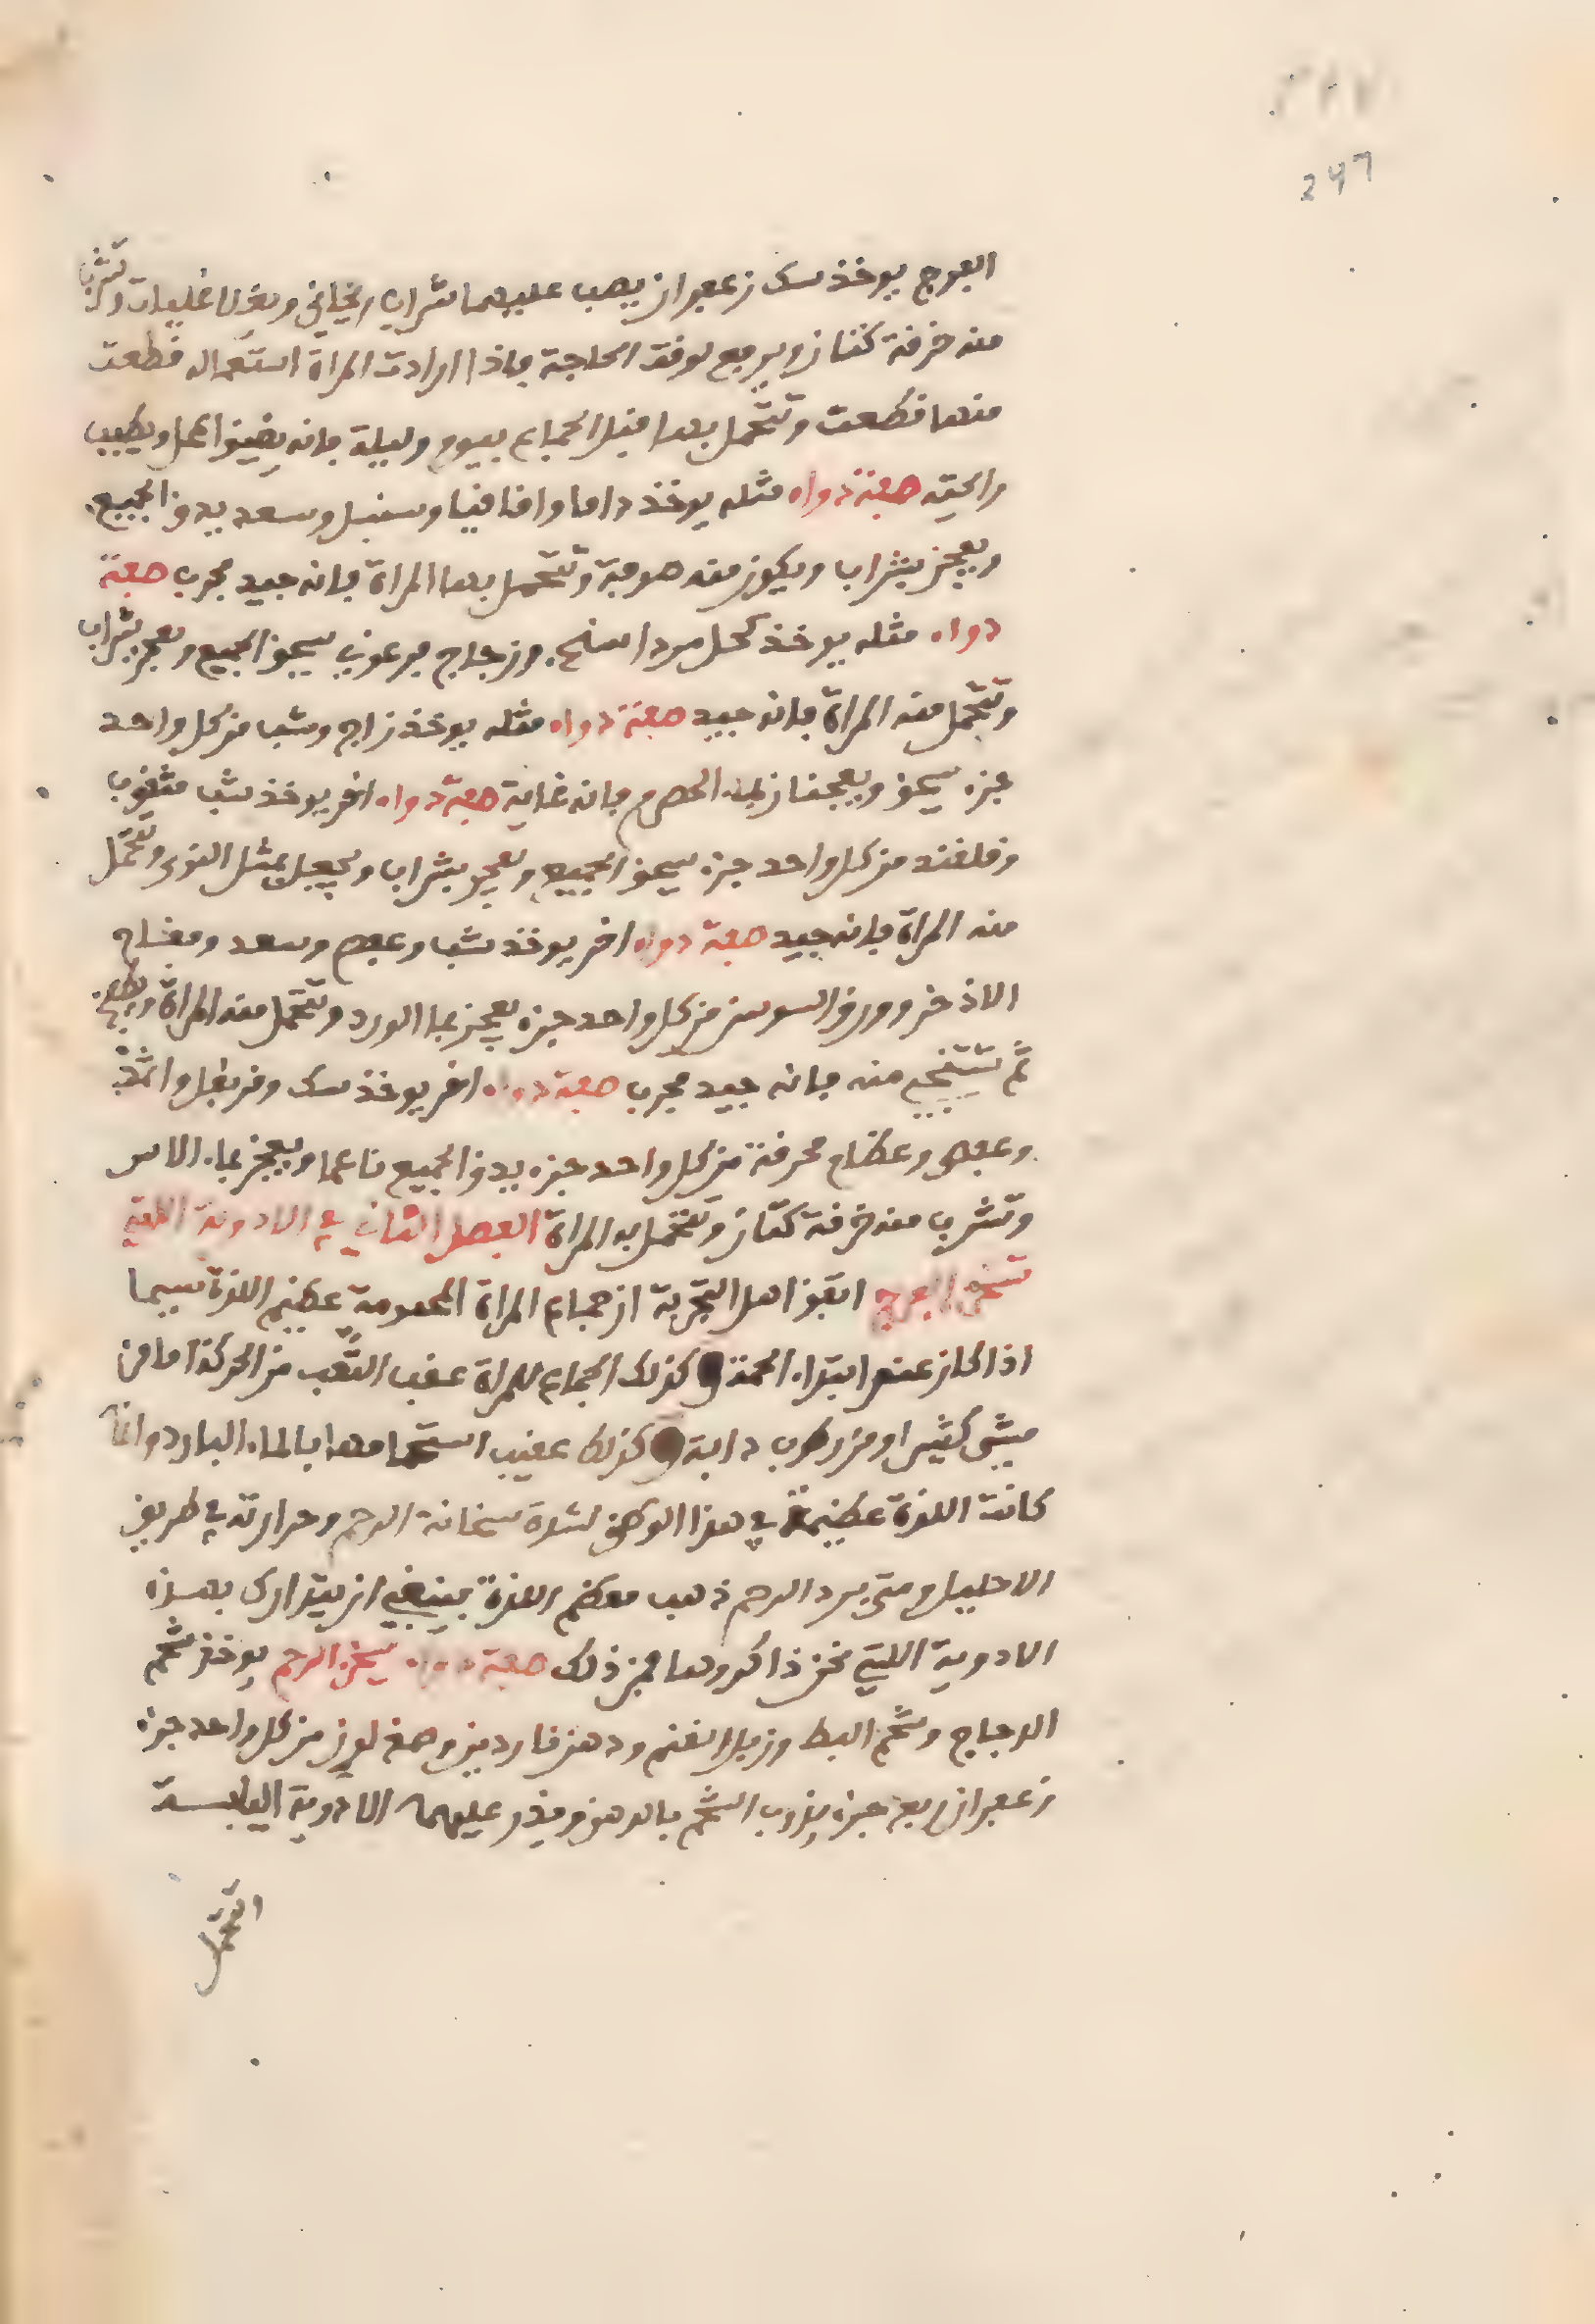 247
الفرج يوخذ سك زعفران يصب عليهما شراب ريحاني ويغلا غليات وتشرب
منه خرفة كتان ويرفع لوقت الحاجة فاذا ارادت المراة استعماله قطعت
منها قطعت وتتحمل بها قبل الجماع بيوم وليلة فانه يضيق المحل ويطيب
رايحته صفة دواء مثله يوخذ راما واقاقيا وسنبل وسعد يدق الجميع
ويعجن بشراب ويكون منه صوفة وتتحمل بها المراة فانه جيد مجرب صفة
دواء مثله يوخذ كحل مرداسنج وزجاج فرعوني يسحق الجميع ويعجن بشراب
وتتحمل منه المراة فانه جيد صفة دواء مثله يوخذ زاج وشب من كل واحد
جزء يسحق ويعجنان بماء الحصرم فانه غاية صفة دواء اخر يوخذ شب مثقوب
وقلقند من كل واحد جزء يسحق الجميع ويعجن بشراب ويجعل مثل النوى وتتحمل
منه المراة فانه جيد صفة دواء اخر يوخذ شب وعفص وسعد وفقاح
الاذخر وورق السوسن من كل واحد جزء يعجن بما الورد وتتحمل منه المراة
ثم تستنج منه فانه جيد مجرب صفة دواء اخر يوخذ سك وقرنفل واثمد
وعفص وعظام محرقة من كل واحد جزء يدق الجميع ناعما ويعجن بماء الاس
وتشرب منه خرقة كتان وتتحمل به المراة الفصل الثاني في الادوية التي
تسخن الفرج اتفق اهل التجربة ان جماع المراة المحمومة عظيم اللذة سيما
اذا كان عند ابتداء الحمة وكذلك الجماع للمراة عقب التعب من الحركة اما من
مشي كثير او من ركوب دابة وكذلك عقيب استحمامها بالماء البارد وانما
كانت اللذة عظيمة في هذا الوطئ لشدة سخانة الرحم وحرارته في طريق
الاحليل ومتى برد الرحم ذهب معظم اللذة فينبغي ان يتدارك بهذه
الادوية اللتي نحن ذاكروها فمن ذلك صفة دواء يسخن الرحم يوخذ شحم
الدجاج وشحم البط وزبل الغنم ودهن ناردين وصمغ لوز من كل واحد جزء
زعفران ربع جزء يذوب الشحم بالدهن ويذر عليهما الادوية اليابسة